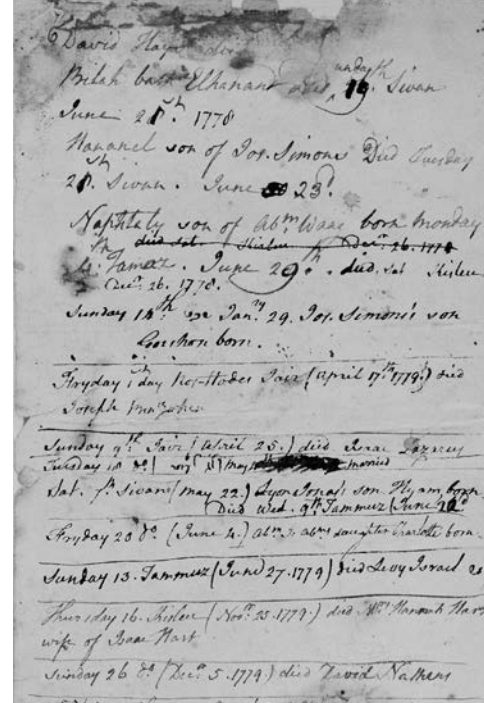 David Hays
Bilah bath Elhanan died Sunday 19th Sivan
June 21st. 1778
Hananel son of Jos. Simons Died Tuesday
28. Sivan. June 23d.
Naphtaly son of Abm. Isaac born Monday
died Sat. Kislev Decr. 26. 1778
4th Tamuz. June 29th. died Sat Kislev
Decr. 26. 1778.
Sunday 14th Jany. 29. Jos. Simons's son
Gershon born.
Fryday 1st day Ros-Hodes Jair (April 17th. 1779.) died
Joseph
Sunday 9th. Jair (April 25.) died Isaac
Tuesday 18 do. May married
Sat. 7th Sivan (May 22.) Lyon Jonas's son Hyam born
Died Wed. 9th Tammuz (June
Fryday 20 do (June 4.) Abm. daughter Charlotte born.
Sunday 13. Tammuz (June 27. 1779) died Levy Israel
Thursday 16. Kislev (Novr. 25. 1779.) died Mrs. Hannah Hart
wife of Isaac Hart
Sunday 26 do (Decr. 5. 1779.) died David Nathans